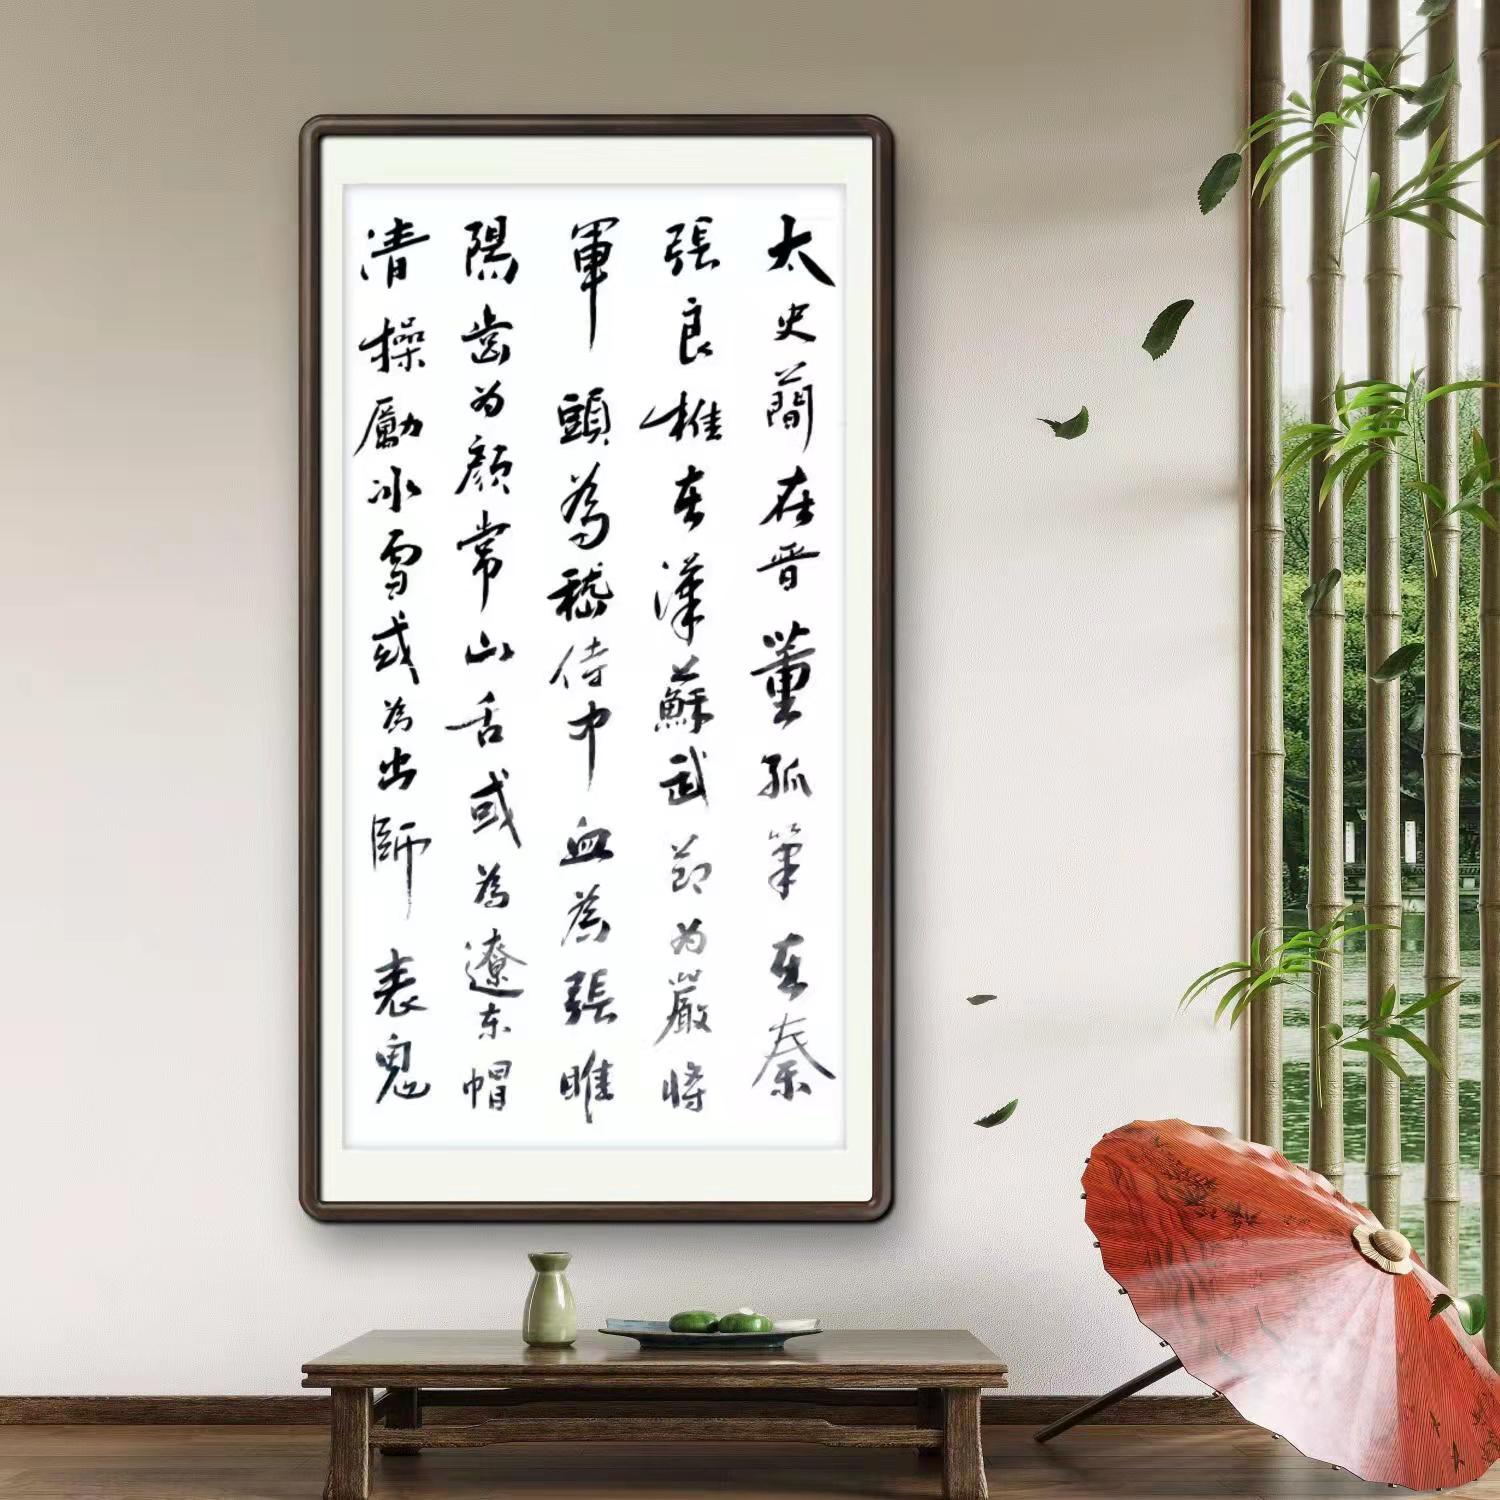 太史蕳在晋董狐筆在秦
張良椎在漢蘇武節为嚴將
軍頭為嵇侍中血為張睢
陽齒为顏常山舌或為遼东帽
清操勵冰雪或為出師表鬼